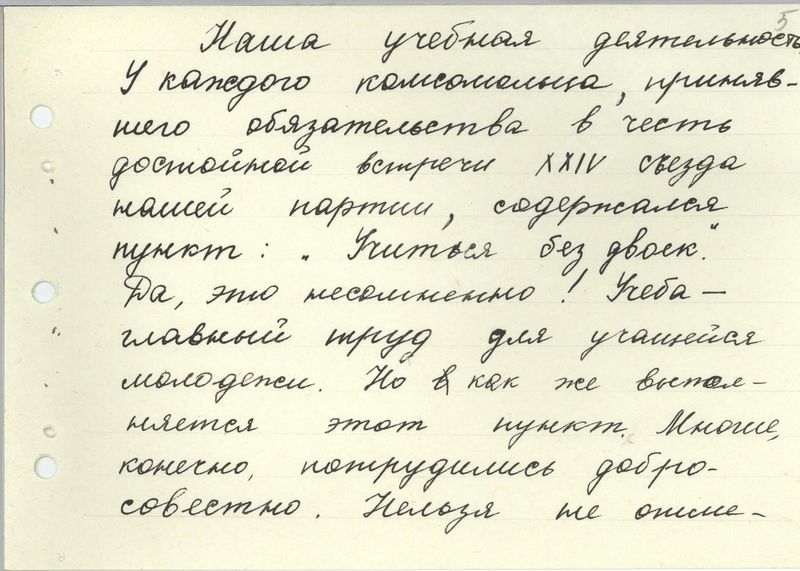 5
Наша учебная деятельность
У каждого комсомольца, приняв-
шего обязательства в честь
достойной встречи XXIV съезда
нашей партии, содержался
пункт: „Учиться без двоек".
Да, это несомненно! Учеба –
главный труд для учащейся
молодежи. Но как же выпол-
няется этот пункт. Многие,
конечно, потрудились добро-
совестно. Нельзя не отме-